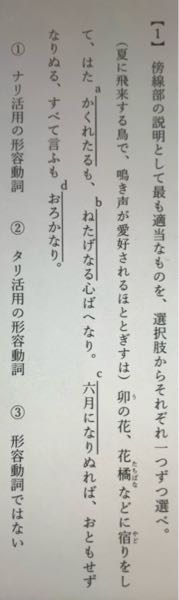 【1】 傍線部の説明として最も適当なものを、選択肢からそれぞれ一つずつ選べ。
(夏に飛来する鳥で、鳴き声が愛好されるほととぎすは) 卯の花、花橘などに宿りをし
う たちばな やど
て、はたaかくれたるも、bねたげなる心ばへなり。c六月になりぬれば、おともせず
なりぬる、すべて言ふもdおろかなり。
① ナリ活用の形容動詞 ② タリ活用の形容動詞 ③ 形容動詞ではない